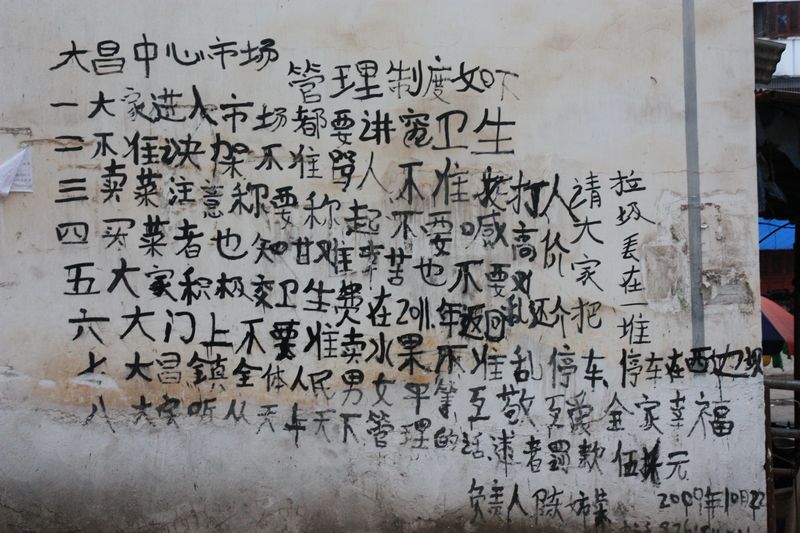 大昌中心市场
管理制度如下
一大家进入市场都要讲究卫生
二不准决架不准骂人不准打人
三卖菜注意称要称起不要喊高价
四买菜者也知甘难辛苦也不要乱还价
五大家积极交卫生费在2011.年返回
六大门上不要准卖水果不准乱停车.停车在西边坝
七大昌镇全体人民男女平等互敬互爱全家幸福
八大家听从天上天下管理的话.违者罚款伍拾元
请大家把
垃圾丢在一堆
负责人陈
2009年10月22